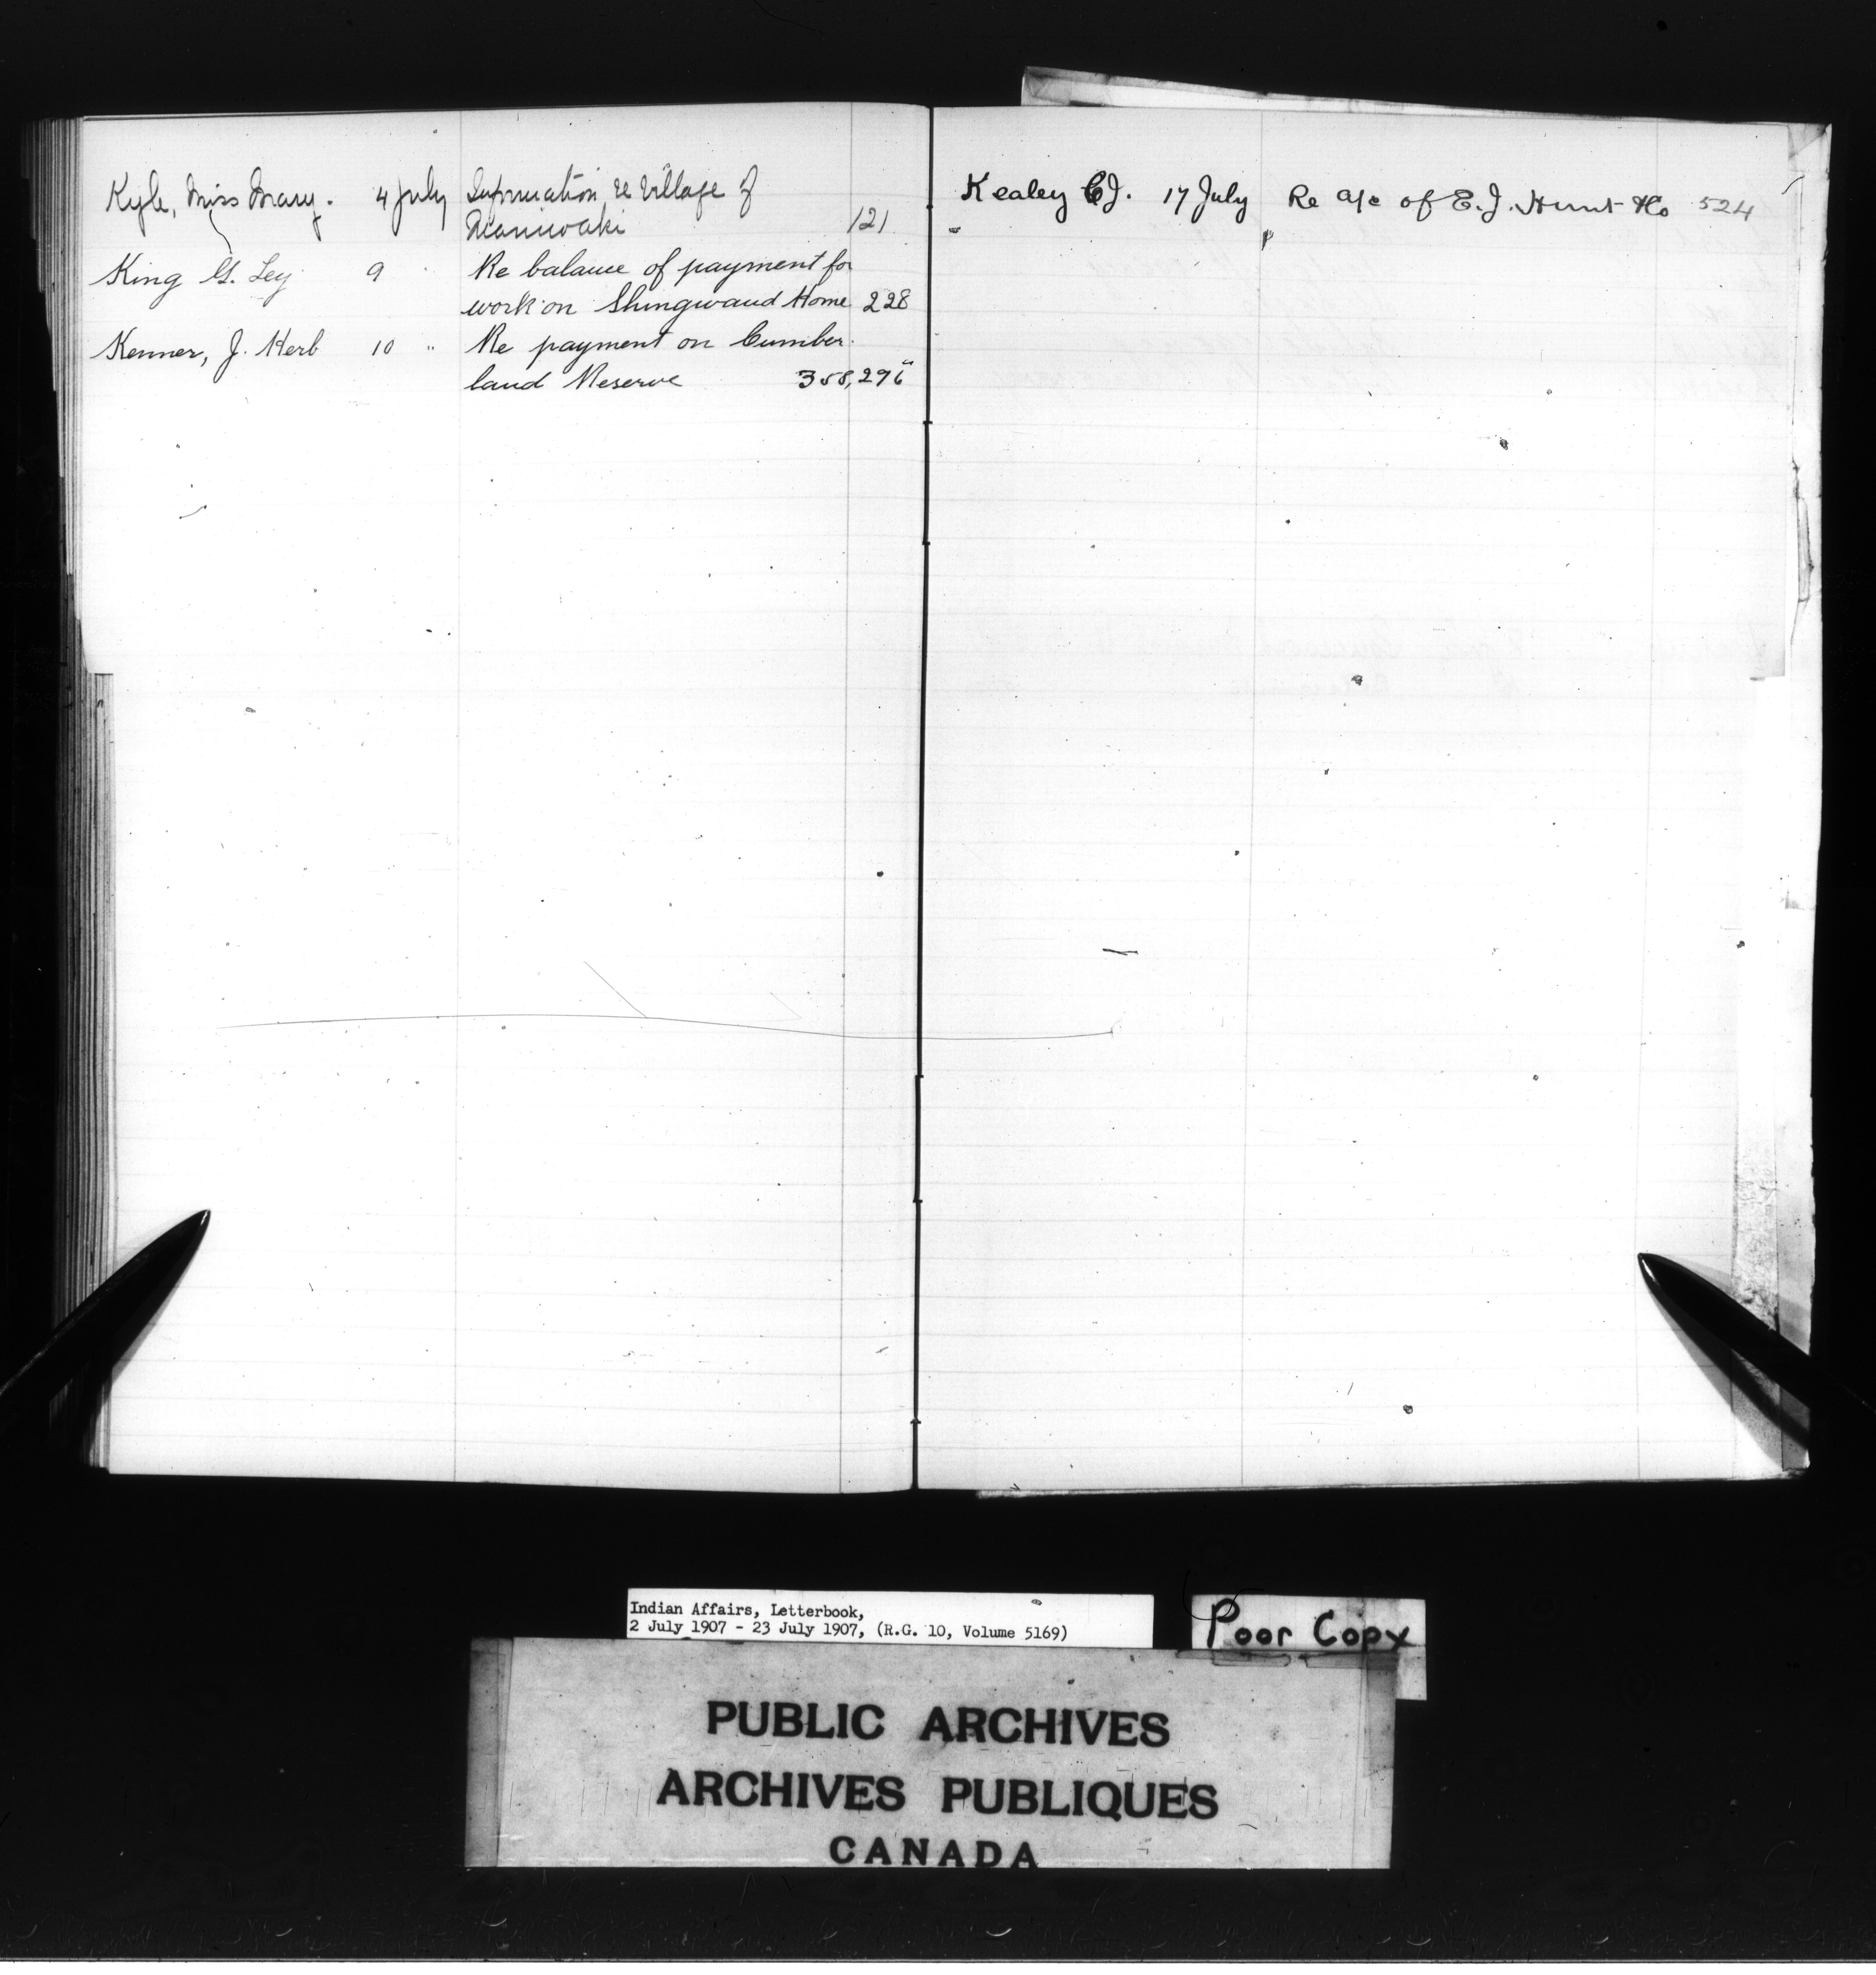 Kyle, Miss Mary. 4 July Information re Village of
Maniwaki 121
King G. Ley 9 " Re balance of payment for
work on Shingwaud Home 228
Kenner, J. Herb 10 " Re payment on Cumber-
land Reserve 358, 296
Kealey C J. 17 July Re a/c of E. J. Hunt & Co 524
Indian Affairs, Letterbook,
2 July 1907 - 23 July 1907, (R.G. 10, Volume 5169)
Poor Copy
PUBLIC ARCHIVES
ARCHIVES PUBLIQUES
CANADA